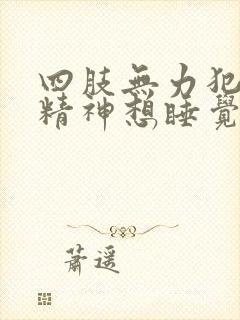 四肢無力犯
精神想睡覺
蕭遥